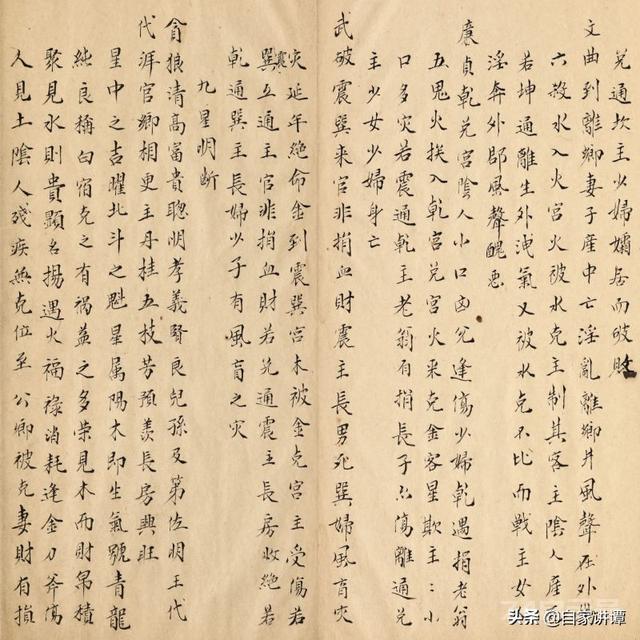 兌通坎主少婦孀居而敗
文曲到離鄉妻子產中亡淫亂離鄉井風聲在外
六殺水入火宮火被水克主制其客主陰人產
若坤通離生外洩氣又被水克不比而戰主女
淫奔外郡風聲醜惡
廉貞乾兌宮陰人小口凶兌逢傷少婦乾遇損老翁
五鬼火挨入乾宮兌宮火來克金客星欺主主小
口多灾若震通乾主老翁有損長子公傷離通兌
主少女少婦身亡
武破震巽來官非損血財震主長男死巽婦風盲灾
灾延年絶命金到震巽宮木被金克宮主受傷若
巽互通主官非損血財若兌通震主長房敗絶若
震
乾通巽主長婦少子有風盲之灾
九星明断
貪狼清高富貴聰明孝義賢良兒孫及第佐明王代
代洊官卿相更主丹桂五枝芳預羨長房興旺
星中之吉曜北斗之魁星属陽木即生氣號青龍
純良稱白宿克之有禍益之多荣見木而財帛積
聚見水則貴顯名揚遇火福祿消耗逢金刀斧傷
人見土陰人殘疾無克位至公卿被克妻財有損
头条 @自家讲谭